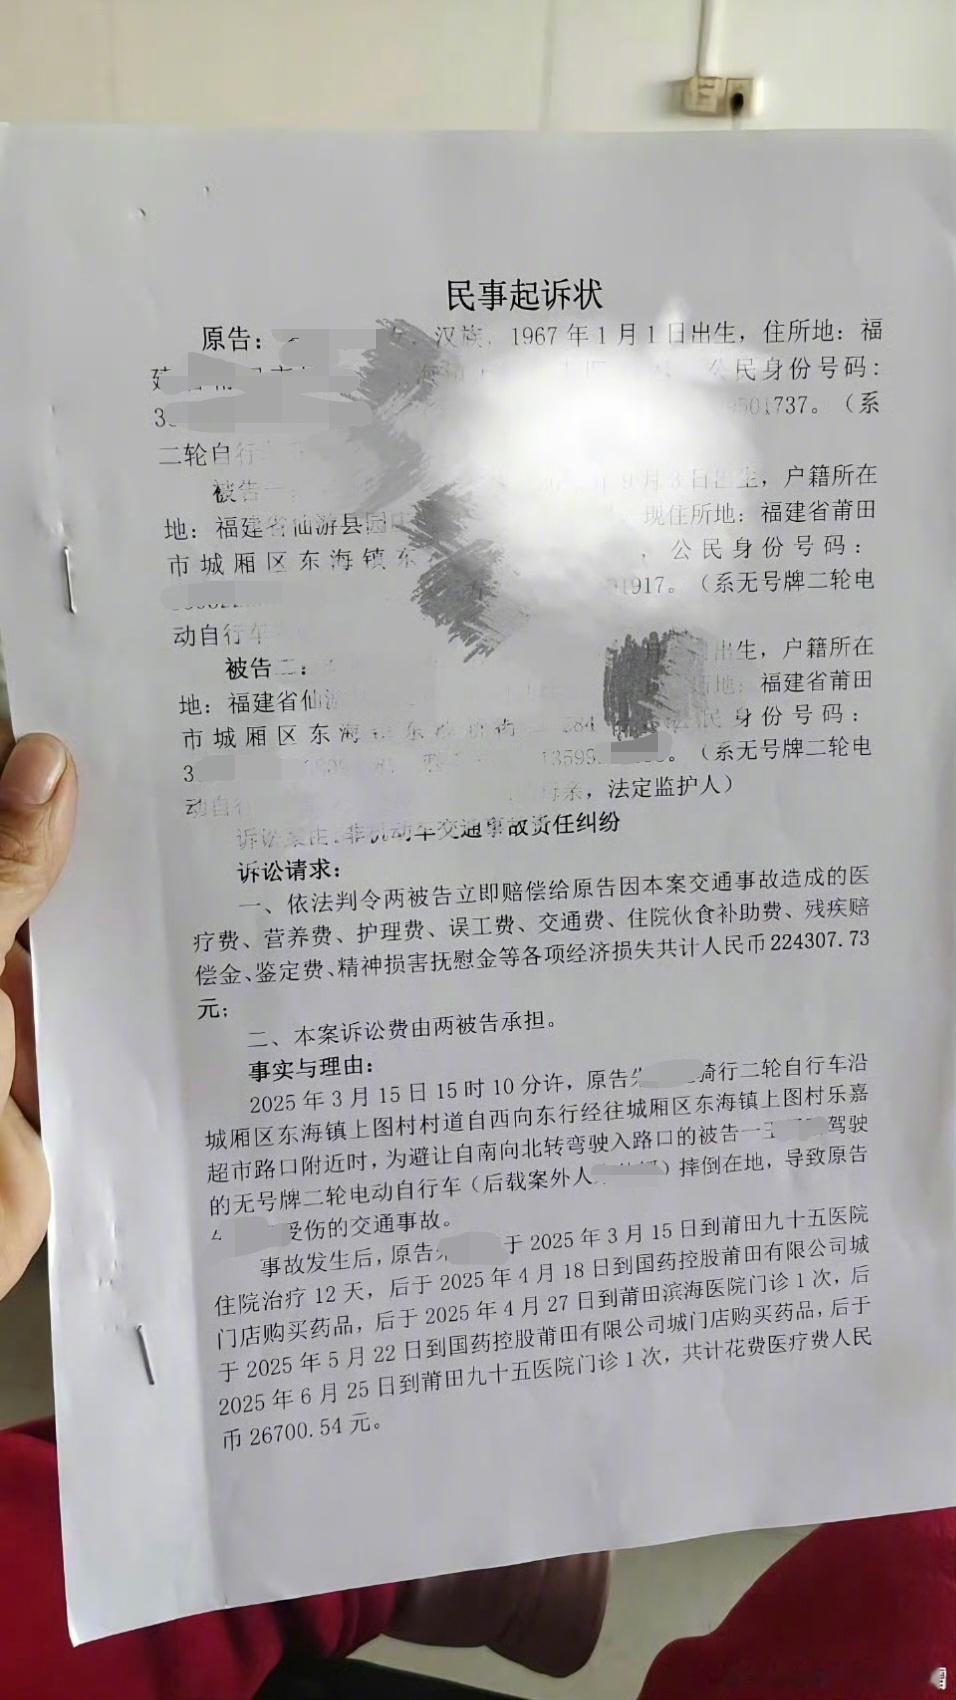 民事起诉状
原告： 汉族，1967年1月1日出生，住所地：福
公民身份号码：
501737。（系
二轮自行
被告一： 9月3日出生，户籍所在
地：福建省仙游县园 现住所地：福建省莆田
市城厢区东海镇东 ，公民身份号码：
1917。（系无号牌二轮电
动自行车
被告二： 出生，户籍所在
地：福建省仙游 福建省莆田
市城厢区东海镇东 民身份号码：
3 13595 。（系无号牌二轮电
动自行 母亲，法定监护人）
诉讼案由：非机动车交通事故责任纠纷
诉讼请求：
一、依法判令两被告立即赔偿给原告因本案交通事故造成的医
疗费、营养费、护理费、误工费、交通费、住院伙食补助费、残疾赔
偿金、鉴定费、精神损害抚慰金等各项经济损失共计人民币224307.73
元；
二、本案诉讼费由两被告承担。
事实与理由：
2025年3月15日15时10分许，原告 骑行二轮自行车沿
城厢区东海镇上图村村道自西向东行经往城厢区东海镇上图村乐嘉
超市路口附近时，为避让自南向北转弯驶入路口的被告一王 驾驶
的无号牌二轮电动自行车（后载案外人 ）摔倒在地，导致原告
受伤的交通事故。
事故发生后，原告 于2025年3月15日到莆田九十五医院
住院治疗12天，后于2025年4月18日到国药控股莆田有限公司城
门店购买药品，后于2025年4月27日到莆田滨海医院门诊1次，后
于2025年5月22日到国药控股莆田有限公司城门店购买药品，后于
2025年6月25日到莆田九十五医院门诊1次，共计花费医疗费人民
币26700.54元。